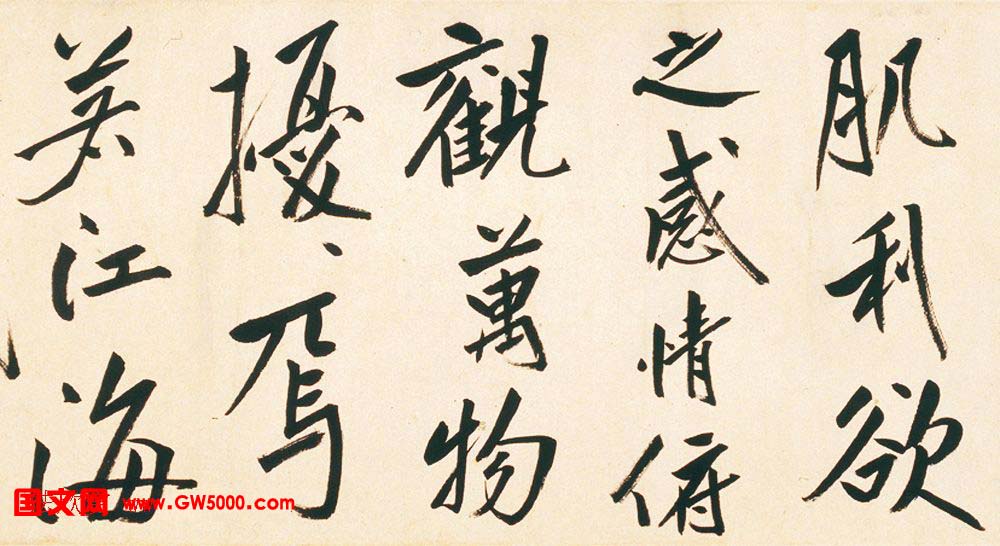 肌利欲
之感情俯
觀萬物
擾、焉
若江海
国文网 www.GW5000.com